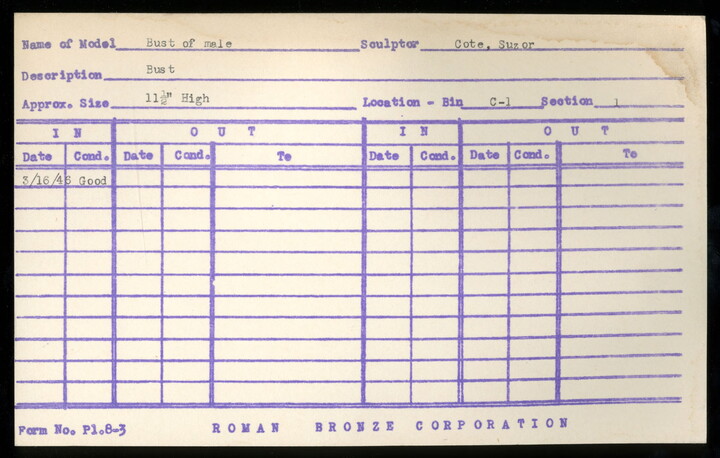 Name of Model Bust of male Sculptor Cote, Suzor
Description Bust
Approx. Size 11½" High Location - Bin C-1 Section 1
IN OUT IN OUT
Date Cond. Date Cond. To Date Cond. Date Cond. To
3/16/46 Good
Form No. Pl.8-3 ROMAN BRONZE CORPORATION